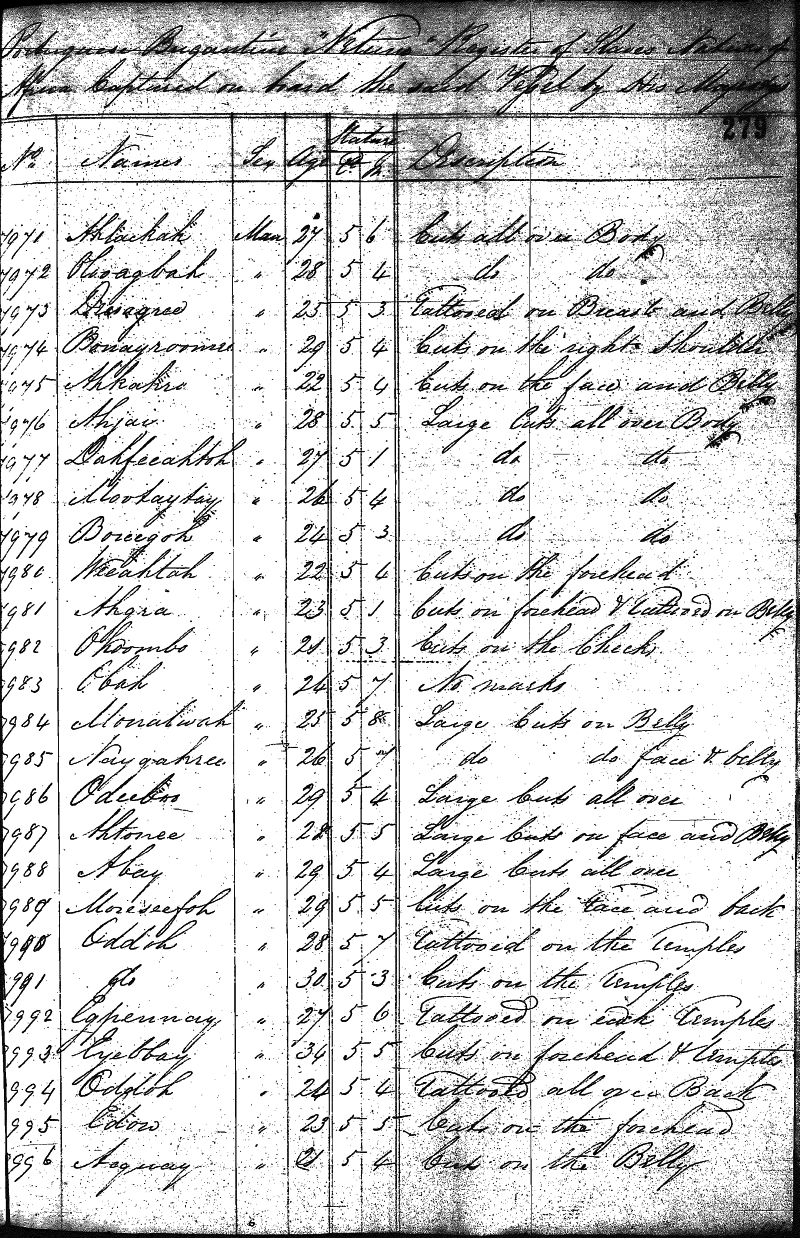 Portuguese Brigantine "Netuno" Register of Slaves Natives of
Africa Captured on board the said Vessel by His Majestys
279
No. Names Sex Age Stature Ft In Description
7971 Ahlackah Man 27 5 6 Cuts all over Body
7972 28 5 4 do do
7973 25 5 3 Tattooed on Breast and Belly
7974 Bonayroomee " 29 5 4 Cuts on the right Shoulder
7975 Ahkahro " 22 5 4 Cuts on the face and Belly
7976 Ahjai " 28 5 5 Large Cuts all over Body
7977 Dahfecahtoh " 27 5 1 do do
7978 Mootaytay " 26 5 4 do do
7979 Bowegoh " 24 5 3 do do
7980 " 22 5 4 Cuts on the forehead
7981 Ahgra " 23 5 1 Cuts on forehead & tattooed on Belly
7982 Okoombo " 21 5 3 Cuts on the Cheeks
7983 Obah " 24 5 7 No marks
7984 " 25 5 8 Large Cuts on Belly
7985 Naygahree " 26 5 7 do do face & belly
7986 Odeeboo " 29 5 4 Large Cuts all over
7987 Ahtonee " 28 5 5 Large Cuts on face and Belly
7988 Abay " 29 5 4 Large Cuts all over
7989 Moreseefoh " 29 5 5 Cuts on the face and back
7990 Oddoh " 28 5 7 Tattooed on the Temples
7991 do " 30 5 3 Cuts on the Temples
7992 Egpennay " 27 5 6 Tattooed on each Temples
7993 Eyebbay " 34 5 5 Cuts on forehead & temples
7994 Oddoh " 24 5 4 Tattooed all over Back
7995 Edow " 23 5 5 Cuts on the forehead
7996 Acquay " 21 5 4 Cuts on the Belly